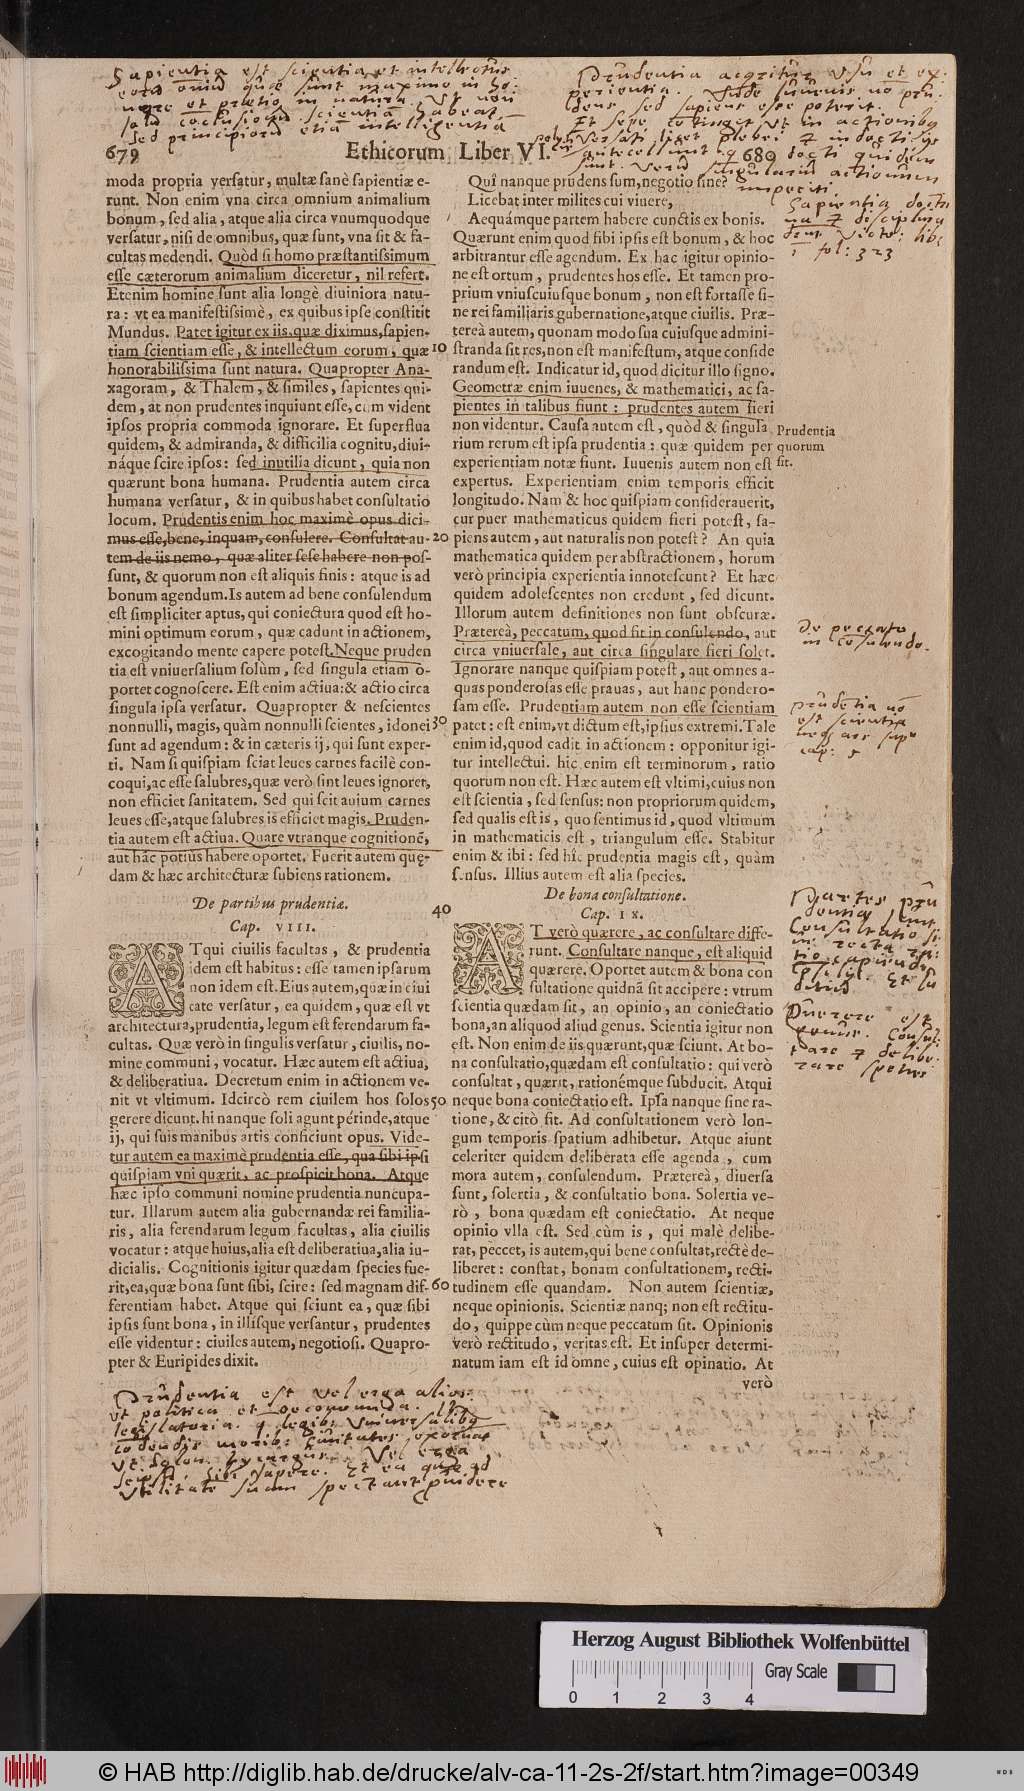 Sapientia est scientia et intellectus
eorũ quæ sunt maxime in ho-
nore et prætio in natura. Ut non
solũ coclusionũ scientiã habeat,
sed principiorũ etiã intelligentiã
Prudentia acqritur usu et ex-
perientia. Vnde juvenis nõ pru-
dens sed sapiens esse poterit.
Et sepe cotinget ut in actionibq
versati licet plebei & indocti
antecellunt docti quidem
sunt verũ singulariũ actionum
imperiti.
679
Ethicorum Liber VI.
680
moda propria versatur, multæ sanè sapientiæ e-
runt. Non enim vna circa omnium animalium
bonum, sed alia, atque alia circa vnumquodque
versatur, nisi de omnibus, quæ sunt, vna sit & fa-
cultas medendi. Quòd si homo præstantissimum
esse cæterorum animalium diceretur, nil refert.
Etenim homine sunt alia longè diuiniora natu-
ra: vt ea manifestissimè, ex quibus ipse constitit
Mundus. Patet igitur ex iis, quæ diximus, sapien-
tiam scientiam esse, & intellectum eorum, quæ
honorabilissima sunt natura. Quapropter Ana-
xagoram, & Thalem, & similes, sapientes qui-
dem, at non prudentes inquiunt esse, cum vident
ipsos propria commoda ignorare. Et superflua
quidem, & admiranda, & difficilia cognitu, diui-
náque scire ipsos: sed inutilia dicunt, quia non
quærunt bona humana. Prudentia autem circa
humana versatur, & in quibus habet consultatio
locum. Prudentis enim hoc maximè opus dici-
mus esse, bene, inquam, consulere. Consultat au-
tem de iis nemo, quæ aliter sese habere non pos-
sunt, & quorum non est aliquis finis: atque is ad
bonum agendum. Is autem ad bene consulendum
est simpliciter aptus, qui coniectura quod est ho-
mini optimum eorum, quæ cadunt in actionem,
excogitando mente capere potest. Neque pruden
tia est vniuersalium solùm, sed singula etiam o-
portet cognoscere. Est enim actiua: & actio circa
singula ipsa versatur. Quapropter & nescientes
nonnulli, magis, quàm nonnulli scientes, idonei
sunt ad agendum: & in cæteris ij, qui sunt exper-
ti. Nam si quispiam sciat leues carnes facilè con-
coqui, ac esse salubres, quæ verò sint leues ignoret,
non efficiet sanitatem. Sed qui scit auium carnes
leues esse, atque salubres is efficiet magis. Pruden-
tia autem est actiua. Quare vtranque cognitionẽ,
aut hãc potius habere oportet. Fuerit autem quę-
dam & hæc architecturæ subiens rationem.
De partibus prudentiæ.
Cap. VIII.
ATqui ciuilis facultas, & prudentia
idem est habitus: esse tamen ipsarum
non idem est. Eius autem, quæ in ciui
cate versatur, ea quidem, quæ est vt
architectura, prudentia, legum est ferendarum fa-
cultas. Quæ verò in singulis versatur, ciuilis, no-
mine communi, vocatur. Hæc autem est actiua,
& deliberatiua. Decretum enim in actionem ve-
nit vt vltimum. Idcircò rem ciuilem hos solos
gerere dicunt. hi nanque soli agunt périnde, atque
ij, qui suis manibus artis conficiunt opus. Vide-
tur autem ea maximè prudentia esse, qua sibi ipsi
quispiam vni quærit, ac prospicit bona. Atque
hæc ipso communi nomine prudentia nuncupa-
tur. Illarum autem alia gubernandæ rei familia-
ris, alia ferendarum legum facultas, alia ciuilis
vocatur: atque huius, alia est deliberatiua, alia iu-
dicialis. Cognitionis igitur quædam species fue-
rit, ea, quæ bona sunt sibi, scire: sed magnam dif-
ferentiam habet. Atque qui sciunt ea, quæ sibi
ipsis sunt bona, in illisque versantur, prudentes
esse videntur: ciuiles autem, negotiosi. Quapro-
pter & Euripides dixit.
10
20
30
40
50
60
Quî nanque prudens sum, negotio sine?
Licebat inter milites cui viuere,
Aequámque partem habere cunctis ex bonis.
Quærunt enim quod sibi ipsis est bonum, & hoc
arbitrantur esse agendum. Ex hac igitur opinio-
ne est ortum, prudentes hos esse. Et tamen pro-
prium vniuscuiusque bonum, non est fortasse si-
ne rei familiaris gubernatione, atque ciuilis. Præ-
tereà autem, quonam modo sua cuiusque admini-
stranda sit res, non est manifestum, atque conside
randum est. Indicatur id, quod dicitur illo signo.
Geometræ enim iuuenes, & mathematici, ac sa-
pientes in talibus fiunt: prudentes autem fieri
non videntur. Causa autem est, quòd & singula
rium rerum est ipsa prudentia: quæ quidem per
experientiam notæ fiunt. Iuuenis autem non est
expertus. Experientiam enim temporis efficit
longitudo. Nam & hoc quispiam considerauerit,
cur puer mathematicus quidem fieri potest, sa-
piens autem, aut naturalis non potest? An quia
mathematica quidem per abstractionem, horum
verò principia experientia innotescunt? Et hæc
quidem adolescentes non credunt, sed dicunt.
Illorum autem definitiones non sunt obscuræ.
Prætereà, peccatum, quod fit in consulendo, aut
circa vniuersale, aut circa singulare fieri solet.
Ignorare nanque quispiam potest, aut omnes a-
quas ponderosas esse prauas, aut hanc pondero-
sam esse. Prudentiam autem non esse scientiam
patet: est enim, vt dictum est, ipsius extremi. Tale
enim id, quod cadit in actionem: opponitur igi-
tur intellectui. hic enim est terminorum, ratio
quorum non est. Hæc autem est vltimi, cuius non
est scientia, sed sensus: non propriorum quidem,
sed qualis est is, quo sentimus id, quod vltimum
in mathematicis est, triangulum esse. Stabitur
enim & ibi: sed hîc prudentia magis est, quàm
sensus. Illius autem est alia species.
De bona consultatione.
Cap. IX.
AT verò quærere, ac consultare diffe-
runt. Consultare nanque, est aliquid
quærere. Oportet autem & bona con
sultatione quidnã sit accipere: vtrum
scientia quædam sit, an opinio, an coniectatio
bona, an aliquod aliud genus. Scientia igitur non
est. Non enim de iis quærunt, quæ sciunt. At bo-
na consultatio, quædam est consultatio: qui verò
consultat, quærit, rationémque subducit. Atqui
neque bona coniectatio est. Ipsa nanque sine ra-
tione, & citò fit. Ad consultationem verò lon-
gum temporis spatium adhibetur. Atque aiunt
celeriter quidem deliberata esse agenda, cum
mora autem, consulendum. Prætereà, diuersa
sunt, solertia, & consultatio bona. Solertia ve-
rò, bona quædam est coniectatio. At neque
opinio vlla est. Sed cùm is, qui malè delibe-
rat, peccet, is autem, qui bene consultat, rectè de-
liberet: constat, bonam consultationem, recti-
tudinem esse quandam. Non autem scientiæ,
neque opinionis. Scientiæ nanq; non est rectitu-
do, quippe cùm neque peccatum sit. Opinionis
verò rectitudo, veritas est. Et insuper determi-
natum iam est id omne, cuius est opinatio. At
verò
Sapientia doctri
na & disciplina
Vide: lib:
1 fol: 323
Prudentia
quorum
sit.
De peccato
in cosulendo.
prudẽtia nõ
est scientia
cap: 5
Partes pru
dentiæ sunt
Consultatio
Querere est
genus. Consul-
tare & delibe-
rare species
Prudentia est vel erga alios:
ut politica et oeconomica. Ut
legislatoria. q legibq Vniversalibq
codendis moribq exornat
ut Solon, Lycurgus. Vel erga
seipsũ, sibi sapere. Et ea quæ ad
vtilitatẽ suam spectant pvidere
Herzog August Bibliothek Wolfenbüttel
Gray Scale
0 1 2 3 4
© HAB http://diglib.hab.de/drucke/alv-ca-11-2s-2f/start.htm?image=00349